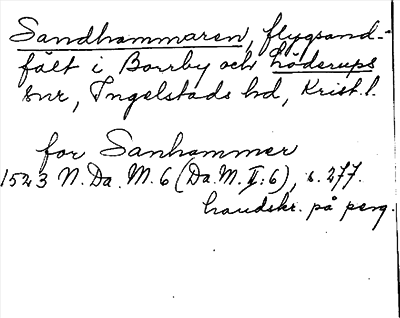 Sandhammaren, flygsand-
fält i Borrby och Löderups
snr, Ingelstads hd, Krist. l.
for Sanhammer
1523 N. Da. M. 6 (Da. M. II:6), s. 277.
handskr. på perg.